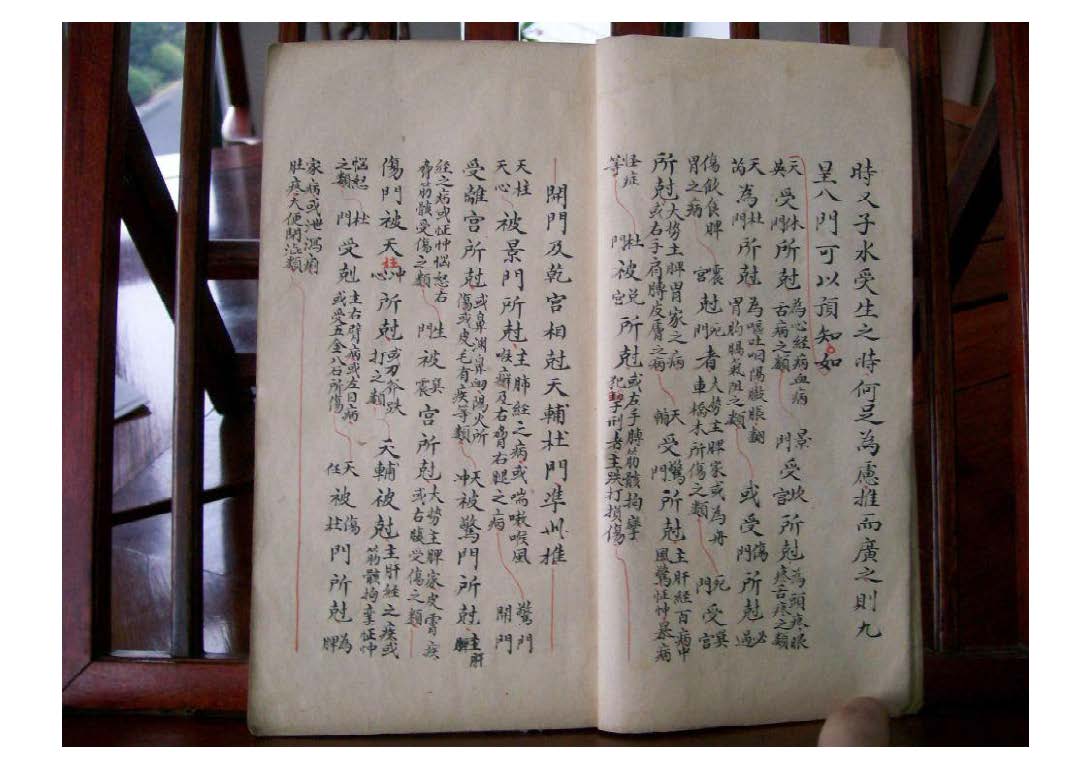 時又子水受生之時何足為慮推而廣之則九
星八門可以預知如
天英受休門所尅為心經病血病舌病之類景門受坎宮所尅為頭疼眼疼舌疼之類
天芮為杜門所尅為嘔吐咽膈臌脹翻胃肋腸氣阻之類或受傷門所尅必過
傷飲食脾胃之病震宮尅死門者大勢主脾家或為舟車橋木所傷之類死門受巽宮
所尅大勢主脾胃家之病或右手肩膊皮膚之病天輔受驚門所尅主肝經百病中風驚怔忡暴病
怪症等杜門被兌宮所尅或左手膊筋骸拘攣犯刑者主跌打損傷
開門及乾宮相尅天輔杜門準此推
天柱天心被景門所尅主肺經之病或喘嗽喉風喉癬及右脅右腿之病驚門開門
受離宮所尅或鼻淵鼻衄湯火所傷或皮毛有疾等類天冲被驚門所尅主肝臟
經之病或怔忡惱怒右脅筋骸受傷之類生門被巽震宮所尅大勢主脾家皮膚疾或右腿受傷之類
傷門被天柱心所尅或刀斧跌打之類天輔被尅主肝經之疾或筋骸拘攣怔忡
惱怒之類杜門受尅主右臂病或左目病或受五金八石所傷天任被傷杜門所尅為脾
家病或泄瀉痢肚疼大便閉澁類